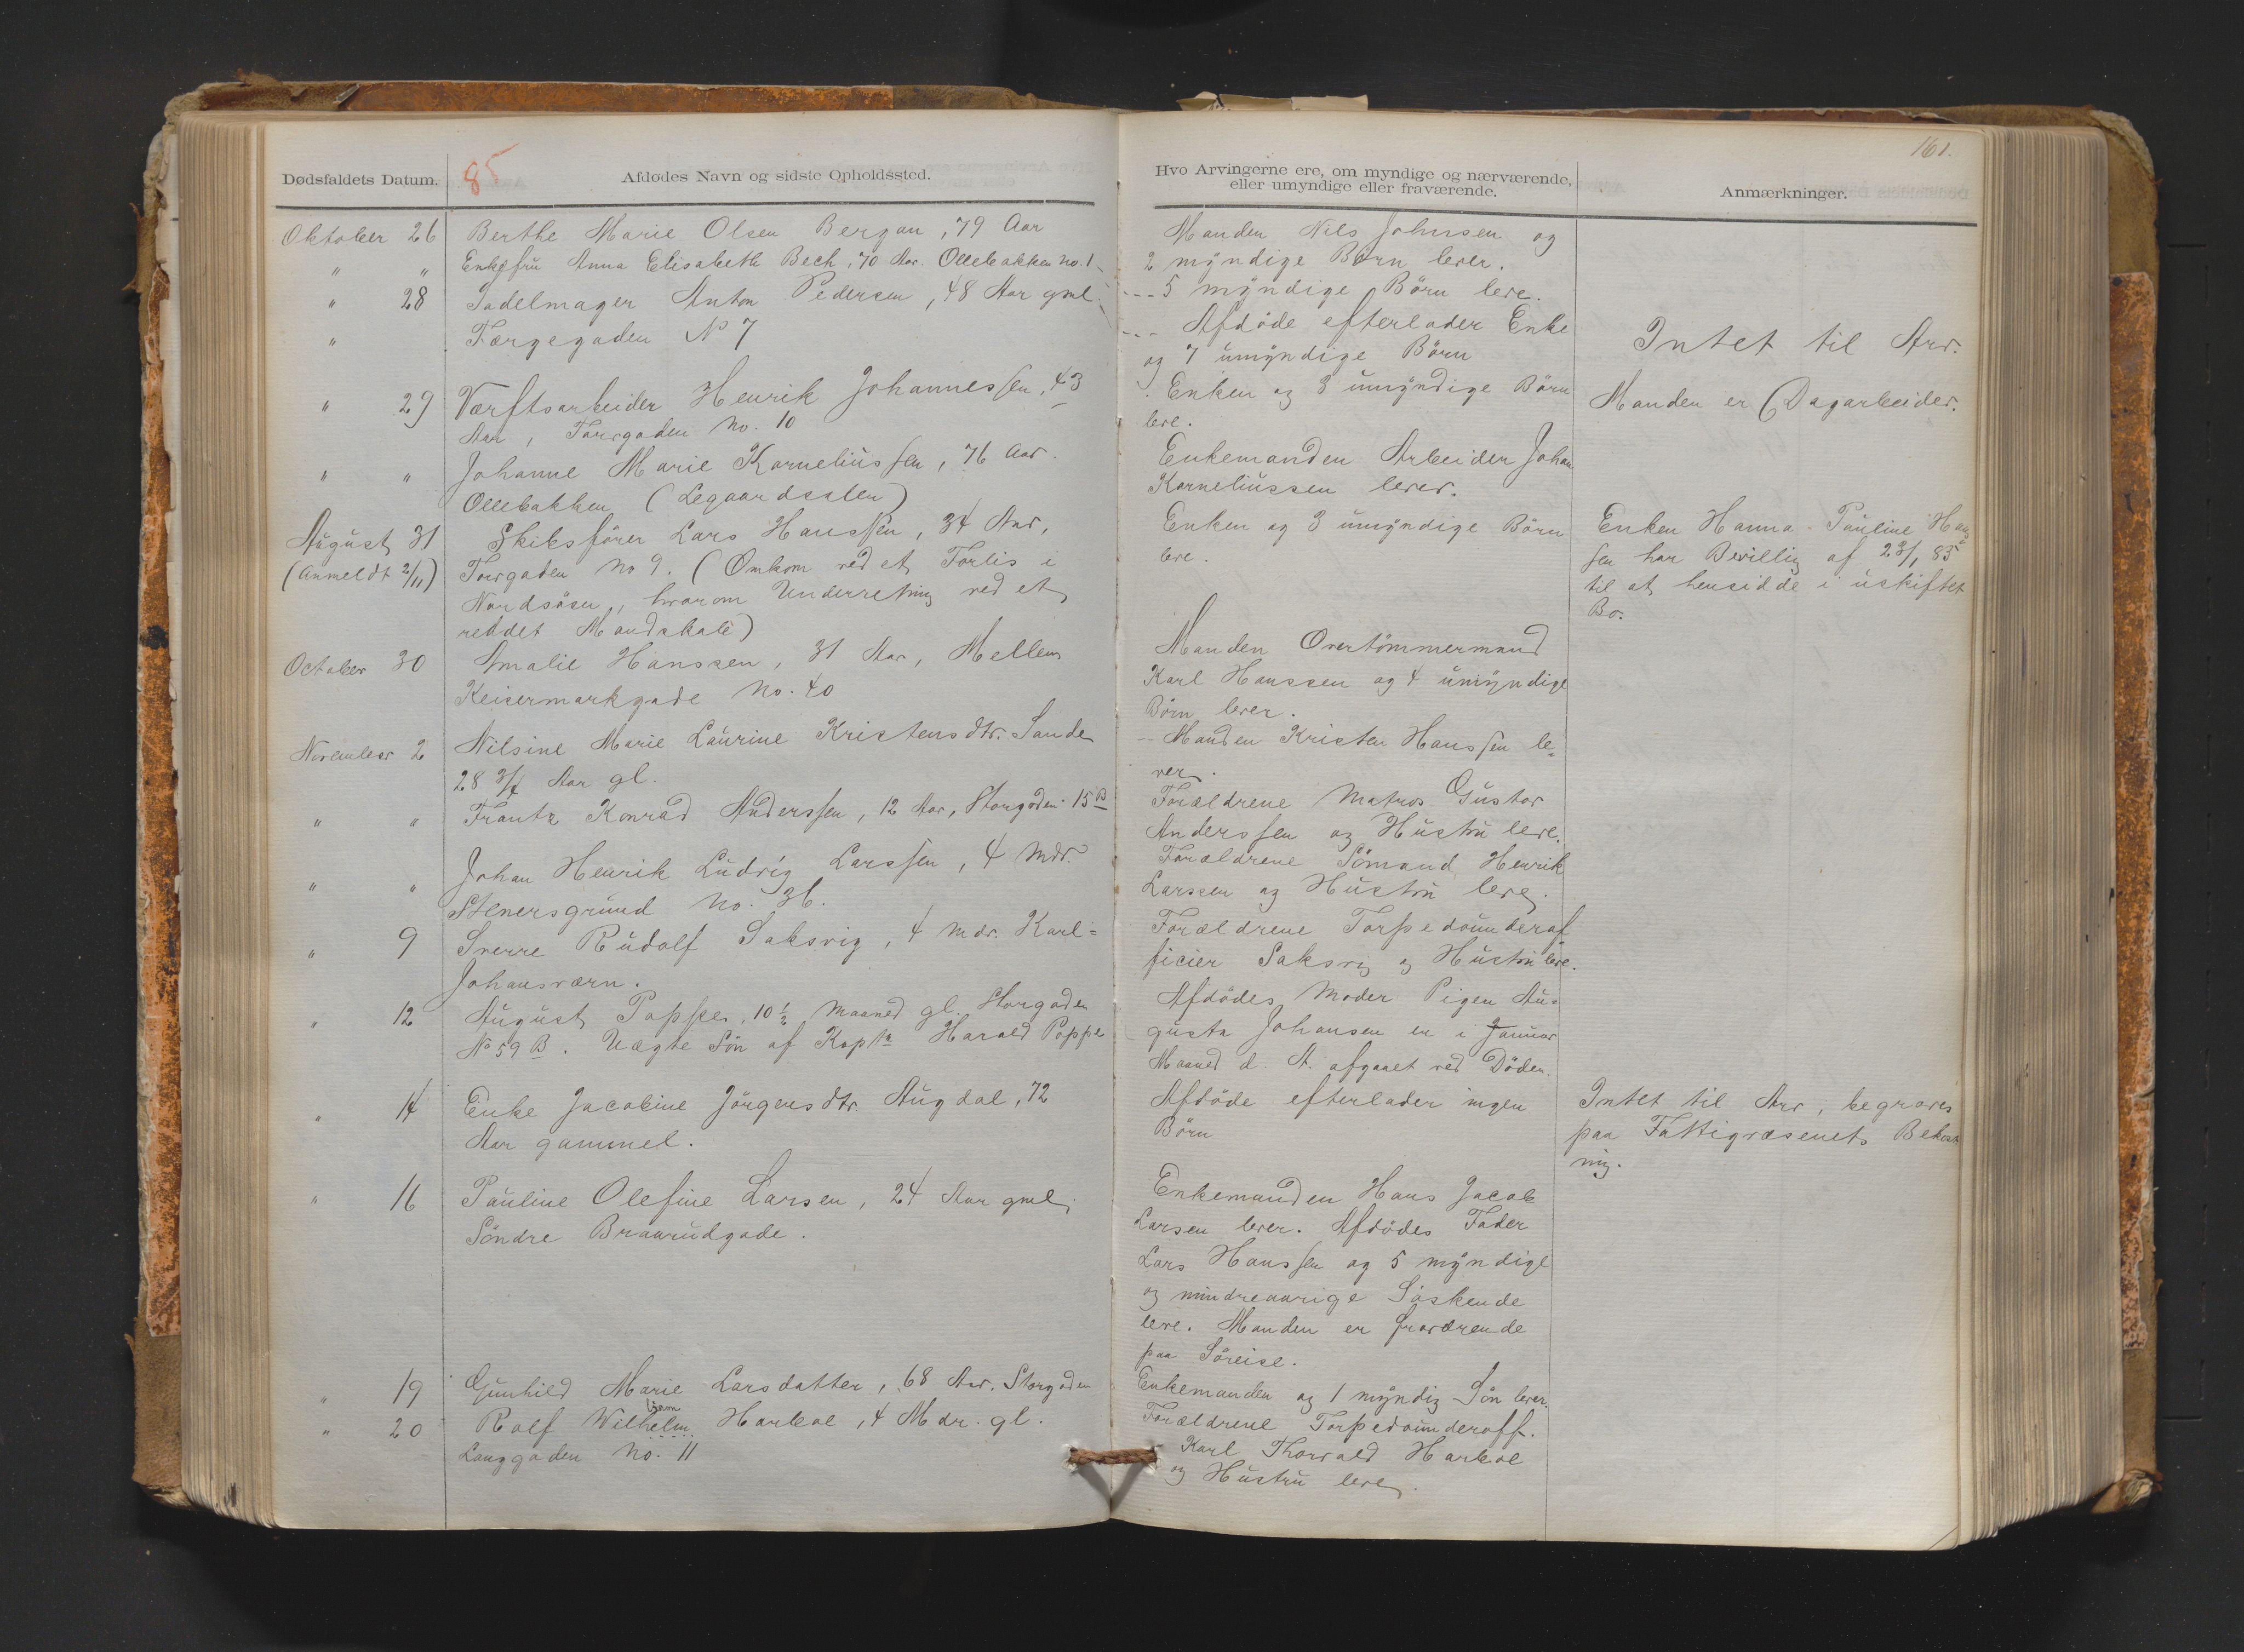 161.
85
Dødsfaldets Datum.
Afdødes Navn og sidste Opholdssted.
Oktober 26 Berthe Marie Olsen Bergan, 79 Aar
" " Enkefru Anna Elisabeth Bech, 70 Aar. Ollebakken no. 1
" 28 Sadelmager Anton Pedersen, 48 Aar gml.
" Færgegaden No 7
" 29 Værftsarbeider Henrik Johannessen, 43
Aar, Torvgaden No. 10
" " Johanne Marie Korneliussen, 76 Aar.
Ollebakken (Legaardsalen)
August 31 Skibsfører Lars Hanssen, 34 Aar,
(Anmeldt 2/11) Torvgaden No 9. (Omkom ved et Forlis i
Nordsøen, hvorom Underretning ved et
reddet Mandskab)
October 30 Amalie Hanssen, 31 Aar, Mellem
Keisermarkgade No. 40
November 2 Nilsine Marie Laurine Kristensdtr. Sande
28 3/4 Aar gl.
" " Frantz Konrad Anderssen, 12 Aar, Storgaden 15 B
" " Johan Henrik Ludvig Larssen, 4 Mdr.
Stenersgrund No. 36.
" 9 Sverre Rudolf Saksvig, 4 Mdr. Karl=
Johansværn.
" 12 August Poppe, 10 1/2 Maaned gl. Storgaden
No 59 B. Uægte Søn af Kaptn Harald Poppe
" 14 Enke Jacobine Jörgensdtr. Augdal, 72
Aar gammel.
" 16 Pauline Olefine Larsen, 24 Aar gml.
Söndre Braarudgade.
" 19 Gunhild Marie Larsdatter, 68 Aar. Storgaden
" 20 Rolf Wilhelm Harboe, 4 Mdr. gl.
Langgaden No. 11
Hvo Arvingerne ere, om myndige og nærværende,
eller umyndige eller fraværende.
Manden Nils Johnsen og
2 myndige Börn lever.
5 myndige Börn leve.
Afdöde efterlader Enke
og 7 umyndige Börn
Enken og 3 umyndige Börn
leve.
Enkemanden Arbeider Johan
Korneliussen lever.
Enken og 3 umyndige Börn
leve.
Manden Overtömmermand
Karl Hanssen og 4 umyndige
Börn lever.
Manden Kristen Hanssen le=
ver.
Forældrene Matros Gustav
Anderssen og Hustru leve.
Forældrene Sömand Henrik
Larssen og Hustru leve.
Forældrene Torpedounderof
ficier Saksvig og Hustru leve.
Afdödes Moder Pigen Au=
gusta Johansen er i Januar
Maaned d. A. afgaaet ved Döden.
Afdöde efterlader ingen
Börn
Enkemanden Hans Jacob
Larsen lever. Afdödes Fader
Lars Hanssen og 5 myndige
og mindreaarige Söskende
leve. Manden er fraværende
paa Söreise.
Enkemanden og 1 myndig Sön lever.
Forældrene Torpedounderoff.
Karl Thorvald Harboe
og Hustru leve.
Anmærkninger.
Intet til Arv.
Manden er Dagarbeider.
Enken Hanna Pauline Hans
sen har Bevilling af 85
til at hensidde i uskiftet
Bo.
Intet til Arv, begraves
paa Fattigvæsenets Bekost
ning.